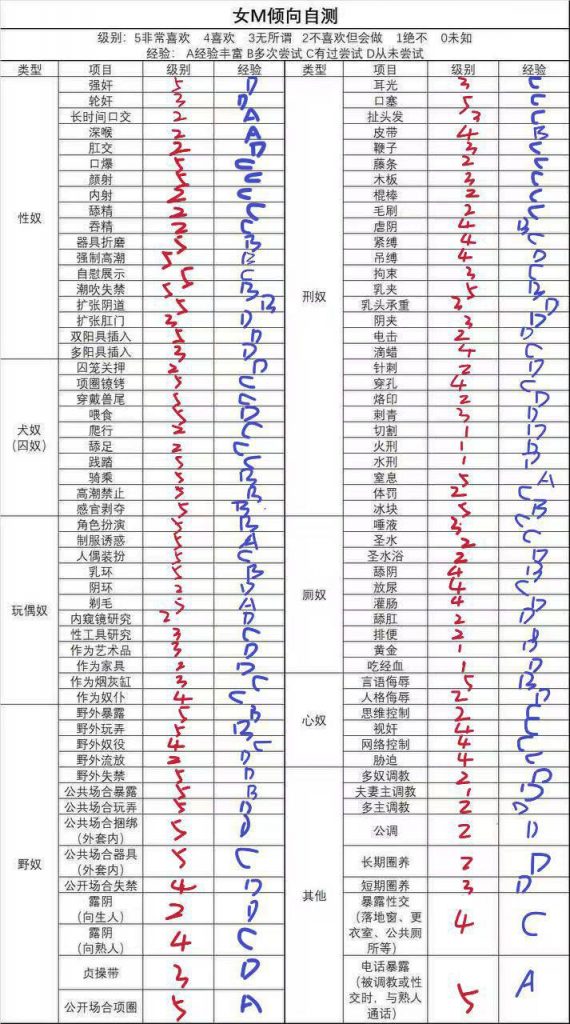 女M倾向自测
级别：5非常喜欢 4喜欢 3无所谓 2不喜欢但会做 1绝不 0未知
经验： A经验丰富 B多次尝试 C有过尝试 D从未尝试
类型 项目 级别 经验
性奴
强奸 5 D
轮奸 3 D
长时间口交 2 A
深喉 2 A
肛交 2 D
口爆 5 C
颜射 5 C
内射 2 C
舔精 2 C
吞精 2 C
器具折磨 5 B
强制高潮 5
自慰展示 5 C
潮吹失禁 5 B
扩张阴道 5 B
扩张肛门 3 D
双阳具插入 5 D
多阳具插入 3 D
犬奴
（囚奴）
囚笼关押 2 D
项圈镣铐 5 C
穿戴兽尾 5 D
喂食 5 D
爬行 2 C
舔足 2 C
践踏 5 C
骑乘 5 B
高潮禁止 5 B
感官剥夺 5 B
玩偶奴
角色扮演 5 B
制服诱惑 5 A
人偶装扮 5 C
乳环 5 B
阴环 2 D
剃毛 5 A
内窥镜研究 2 D
性工具研究 3 C
作为艺术品 3 D
作为家具 2 D
作为烟灰缸 3 C
作为奴仆 4 C
野奴
野外暴露 5 B
野外玩弄 5 B
野外奴役 4 C
野外流放 2 D
野外失禁 5 D
公共场合暴露 5 B
公共场合玩弄 5 D
公共场合捆绑
（外套内） 5 D
公共场合器具
（外套内） 5 C
公开场合失禁 4 D
露阴
（向生人） 2 D
露阴
（向熟人） 4 C
贞操带 3 D
公开场合项圈 5 A
类型 项目 级别 经验
刑奴
耳光 3 C
口塞 5 C
扯头发 3 C
皮带 4 B
鞭子 3 C
藤条 2 C
木板 3 C
棍棒 2 C
毛刷 2 C
虐阴 4 B
紧缚 4 C
吊缚 4 D
拘束 3 C
乳夹 5 B
乳头承重 3 D
阴夹 3 D
电击 2 D
滴蜡 4 C
针刺 2 D
穿孔 4 C
烙印 2 D
刺青 3 D
切割 1 D
火刑 1 D
水刑 1 D
窒息 5 A
体罚 2 C
冰块 5 B
厕奴
唾液 3 C
圣水 2 C
圣水浴 2 D
舔阴 4 B
放尿 4 C
灌肠 4 D
舔肛 2 D
排便 2
黄金 1 D
吃经血 1 D
心奴
言语侮辱 5 B
人格侮辱 2 D
思维控制 2 C
视奸 4 C
网络控制 4 C
胁迫 4 C
其他
多奴调教 2 D
夫妻主调教 1 D
多主调教 2 D
公调 2 D
长期圈养 2 D
短期圈养 3 D
暴露性交
（落地窗、更
衣室、公共厕
所等） 4 C
电话暴露
（被调教或性
交时，与熟人
通话） 5 A